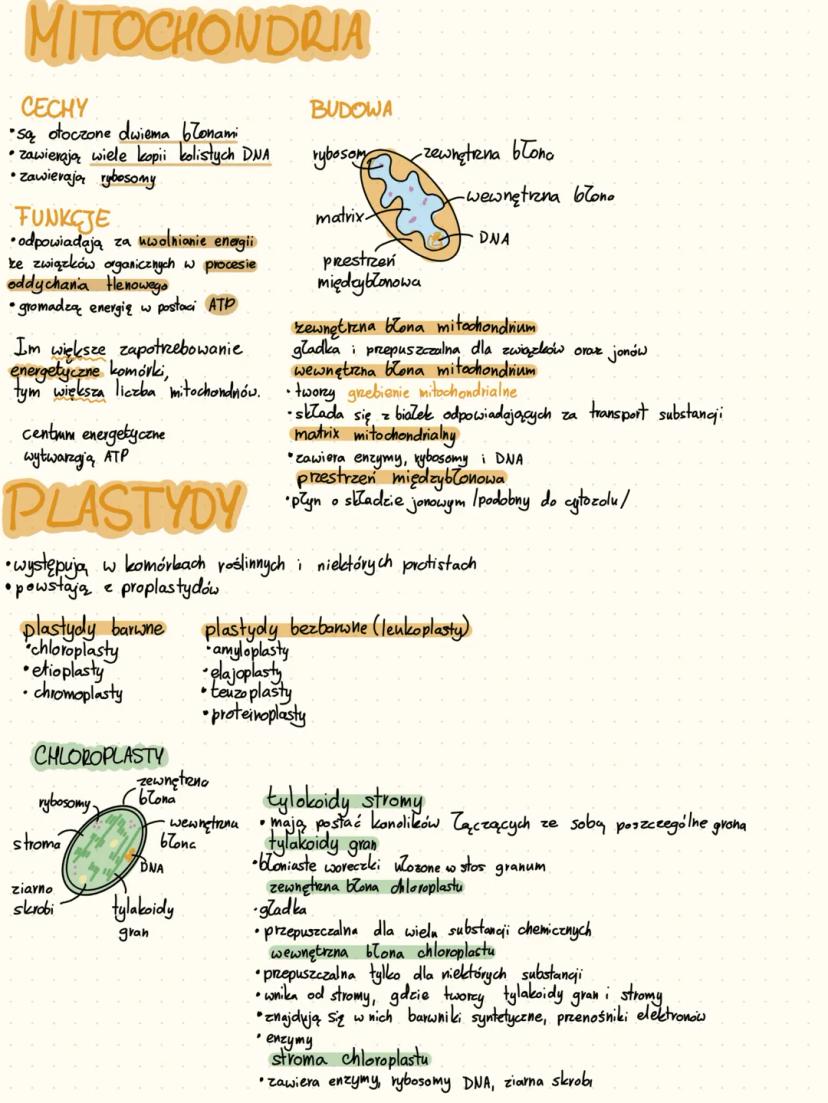 MITOCHONDRIA
CECHY
• są otoczone dwiema błonami
• zawierają wiele kopii kolistych DNA
• zawierają rybosomy
FUNKCJE
• odpowiadają za uwolnianie energii
ze związków organicznych w procesie
oddychania tlenowego
• gromadzą energię w postaci ATP
Im większe zapotrzebowanie
energetyczne komórki,
tym większa liczba mitochondriów.
centrum energetyczne
wytwarzają ATP
BUDOWA
rybosom
zewnętrzna błona
wewnętrzna błona
matrix
DNA
przestrzeń
międzybłonowa
zewnętrzna błona mitochondrium
gładka i przepuszczalna dla związków oraz jonów
wewnętrzna błona mitochondrium
• tworzy grzebienie mitochondrialne
• składa się z białek odpowiadających za transport substancji
matrix mitochondrialny
• zawiera enzymy, rybosomy i DNA
przestrzeń międzybłonowa
• płyn o składzie jonowym /podobny do cytozolu/
PLASTYDY
• występują w komórkach roślinnych i niektórych protistach
• powstają z proplastydów
plastydy barwne
• chloroplasty
• etioplasty
• chromoplasty
plastydy bezbarwne (leukoplasty)
• amyloplasty
• elajoplasty
• teuzoplasty
• proteinoplasty
CHLOROPLASTY
zewnętrzna
błona
rybosomy
wewnętrzna
błona
stroma
DNA
ziarno
skrobi
tylakoidy
gran
tylokoidy stromy
• mają postać kanalików łączących ze sobą poszczególne grona
tylakoidy gran
• błoniaste woreczki ułożone w stos granum
zewnętrzna błona chloroplastu
• gładka
• przepuszczalna dla wielu substancji chemicznych
wewnętrzna błona chloroplastu
• przepuszczalna tylko dla niektórych substancji
• wnika od stromy, gdzie tworzy tylakoidy gran i stromy
• znajdują się w nich barwniki syntetyczne, przenośniki elektronów
• enzymy
stroma chloroplastu
• zawiera enzymy, rybosomy DNA, ziarna skrobi